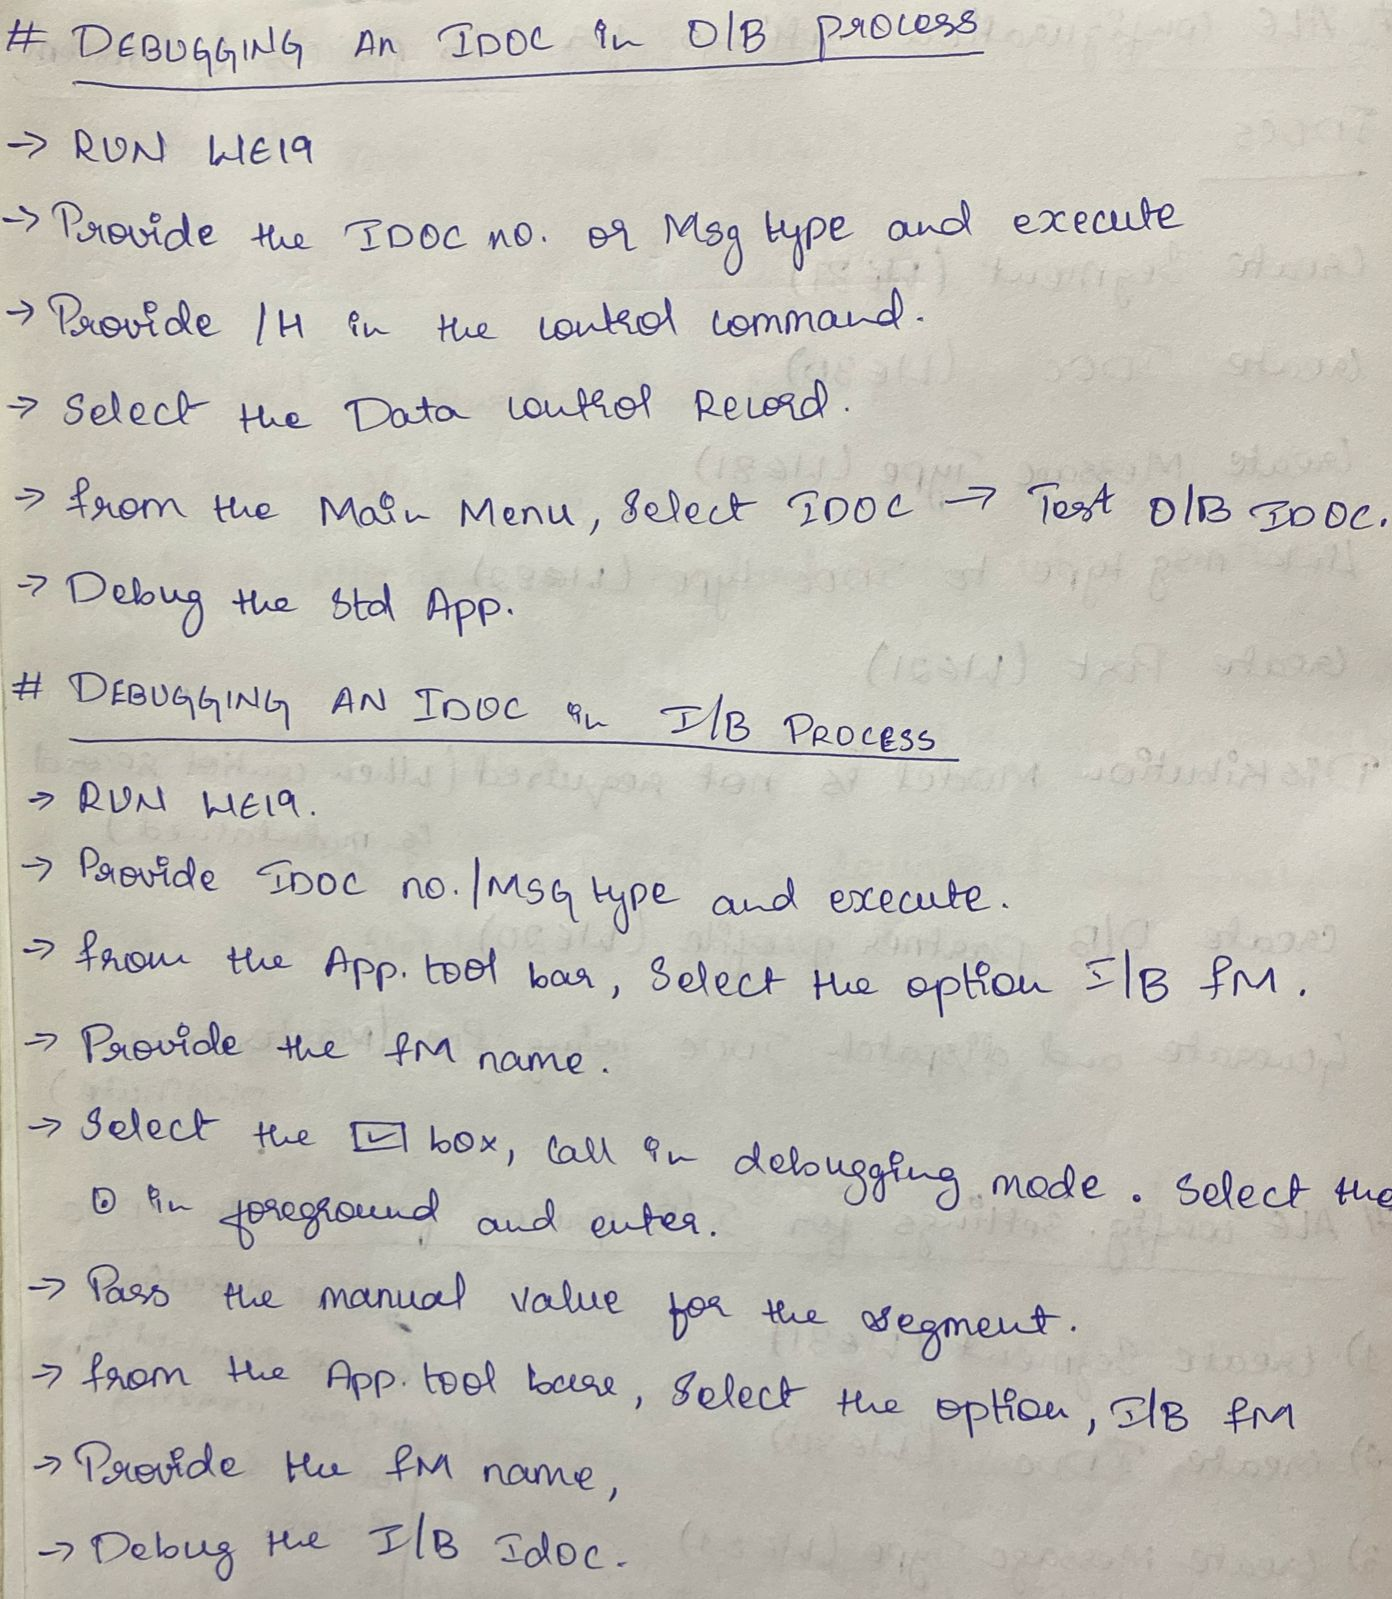 # DEBUGGING An IDOC in O/B process
→ RUN WE19
→ Provide the IDOC no. or Msg type and execute
→ Provide /H in the control command.
→ Select the Data control Record.
→ from the Main Menu, Select IDOC → Test O/B IDOC.
→ Debug the Std App.
# DEBUGGING AN IDOC in I/B PROCESS
→ RUN WE19.
→ Provide IDOC no./MSG type and execute.
→ from the App. tool bar, Select the option I/B fM.
→ Provide the fM name.
→ Select the ☑ box, Call in debugging mode. Select the
⊙ in foreground and enter.
→ Pass the manual value for the segment.
→ from the App. tool bare, Select the option, I/B fM
→ Provide the fM name,
→ Debug the I/B Idoc.